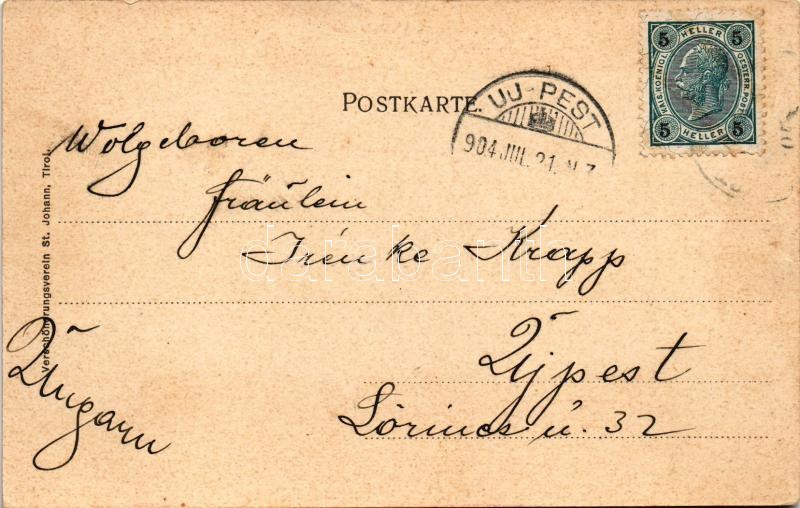 POSTKARTE.
UJ-PEST
904 JUL. 21. N 7
5 HELLER 5
KAIS. KOENIGL. OESTERR. POST
5 HELLER 5
Wolgeboren
Fräulein
Irénke Krapp
Ujpest
Lörincs ú. 32
Ungarn
Verschönerungsverein St. Johann, Tirol.
darabanth